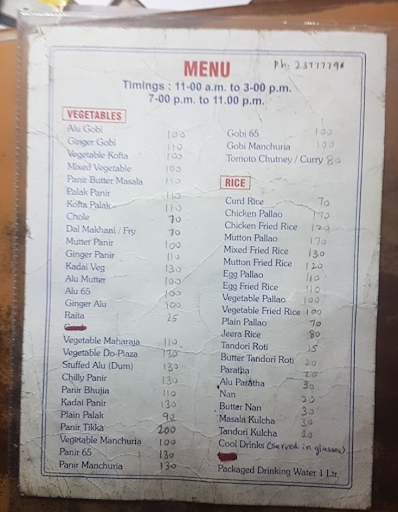 MENU
Ph: 23777794
Timings : 11-00 a.m. to 3-00 p.m.
7-00 p.m. to 11.00 p.m.
VEGETABLES
Alu Gobi 100
Ginger Gobi 110
Vegetable Kofta 100
Mixed Vegetable 100
Panir Butter Masala 110
Palak Panir 110
Kofta Palak 110
Chole 70
Dal Makhani / Fry 70
Mutter Panir 100
Ginger Panir 110
Kadai Veg 130
Alu Mutter 100
Alu 65 100
Ginger Alu 100
Raita 25
Vegetable Maharaja 110
Vegetable Do-Piaza 130
Stuffed Alu (Dum) 130
Chilly Panir 130
Panir Bhujia 110
Kadai Panir 130
Plain Palak 90
Panir Tikka 200
Vegetable Manchuria 100
Panir 65 130
Panir Manchuria 130
Gobi 65 100
Gobi Manchuria 100
Tomoto Chutney / Curry 80
RICE
Curd Rice 70
Chicken Pallao 170
Chicken Fried Rice 120
Mutton Pallao 170
Mixed Fried Rice 130
Mutton Fried Rice 120
Egg Pallao 110
Egg Fried Rice 110
Vegetable Pallao 100
Vegetable Fried Rice 100
Plain Pallao 70
Jeera Rice 80
Tandori Roti 15
Butter Tandori Roti 20
Paratha 20
Alu Paratha 30
Nan 20
Butter Nan 30
Masala Kulcha 30
Tandori Kulcha 20
Cool Drinks (Served in glasses)
Packaged Drinking Water 1 Ltr.